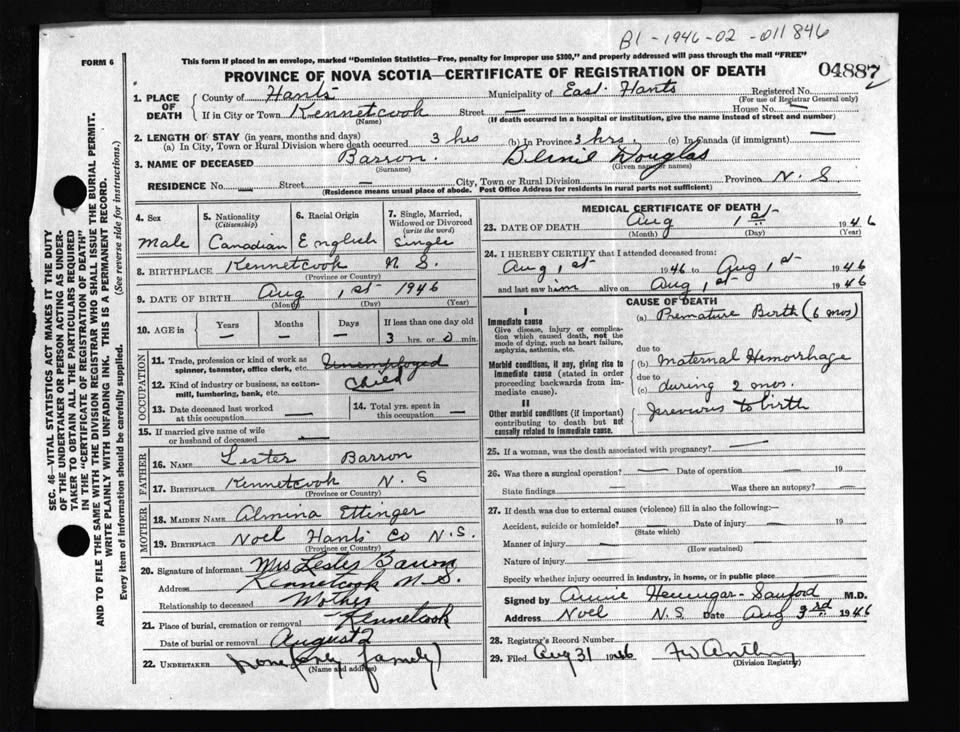 B1-1946-02-011846
FORM 6
This form if placed in an envelope, marked "Dominion Statistics—Free, penalty for improper use $300," and properly addressed will pass through the mail "FREE"
PROVINCE OF NOVA SCOTIA—CERTIFICATE OF REGISTRATION OF DEATH
04887
1. PLACE OF DEATH
County of Hants Municipality of East Hants Registered No.
(For use of Registrar General only)
If in City or Town Kennetcook Street — House No.
(Name) (If death occurred in a hospital or institution, give the name instead of street and number)
2. LENGTH OF STAY (in years, months and days)
(a) In City, Town or Rural Division where death occurred 3 hrs (b) In Province 3 hrs. (c) In Canada (if immigrant) —
3. NAME OF DECEASED Barron. Douglas
(Surname) (Given name or names)
RESIDENCE No. — Street City, Town or Rural Division Province N. S.
(Residence means usual place of abode. Post Office Address for residents in rural parts not sufficient)
4. Sex
Male
5. Nationality
(Citizenship)
Canadian
6. Racial Origin
English
7. Single, Married, Widowed or Divorced
(write the word)
Single
8. BIRTHPLACE Kennetcook N. S.
(Province or Country)
9. DATE OF BIRTH Aug 1st 1946
(Month) (Day) (Year)
10. AGE in
Years Months Days If less than one day old
— — — 3 hrs. or 0 min.
OCCUPATION
11. Trade, profession or kind of work as spinner, teamster, office clerk, etc. Unemployed
Child
12. Kind of industry or business, as cotton-mill, lumbering, bank, etc.
13. Date deceased last worked at this occupation —
14. Total yrs. spent in this occupation —
15. If married give name of wife or husband of deceased —
FATHER
16. NAME Lester Barron
17. BIRTHPLACE Kennetcook N. S
(Province or Country)
MOTHER
18. MAIDEN NAME Almina Ettinger
19. BIRTHPLACE Noel Hants Co N.S.
(Province or Country)
20. Signature of informant Mrs Lester Barron
Address Kennetcook N. S.
Relationship to deceased Mother
21. Place of burial, cremation or removal Kennetcook
Date of burial or removal August 2
22. UNDERTAKER none (only family)
(Name and address)
MEDICAL CERTIFICATE OF DEATH
23. DATE OF DEATH Aug 1st 1946
(Month) (Day) (Year)
24. I HEREBY CERTIFY that I attended deceased from:
Aug 1st 1946 to Aug 1st 1946
and last saw him alive on Aug 1st 1946
CAUSE OF DEATH
I
Immediate cause
Give disease, injury or complication which caused death, not the mode of dying, such as heart failure, asphyxia, asthenia, etc.
(a) Premature Birth (6 mos)
due to
Morbid conditions, if any, giving rise to immediate cause (stated in order proceeding backwards from immediate cause).
(b) Maternal Hemorrhage
due to
(c) during 2 mos.
II
Other morbid conditions (if important) contributing to death but not causally related to immediate cause.
previous to birth
25. If a woman, was the death associated with pregnancy? —
26. Was there a surgical operation? — Date of operation — 19
State findings Was there an autopsy? —
27. If death was due to external causes (violence) fill in also the following:—
Accident, suicide or homicide? — Date of injury — 19
(State which)
Manner of injury —
(How sustained)
Nature of injury —
Specify whether injury occurred in industry, in home, or in public place —
Signed by Annie Hennigar-Sanford M.D.
Address Noel N. S Date Aug 3rd 1946
28. Registrar's Record Number
29. Filed Aug 31 1946
(Division Registrar)
SEC. 46—VITAL STATISTICS ACT MAKES IT THE DUTY
OF THE UNDERTAKER OR PERSON ACTING AS UNDER-
TAKER TO OBTAIN ALL THE PARTICULARS REQUIRED
IN THE "CERTIFICATE OF REGISTRATION OF DEATH"
AND TO FILE THE SAME WITH THE DIVISION REGISTRAR WHO SHALL ISSUE THE BURIAL PERMIT.
WRITE PLAINLY WITH UNFADING INK. THIS IS A PERMANENT RECORD.
Every item of information should be carefully supplied. (See reverse side for instructions.)